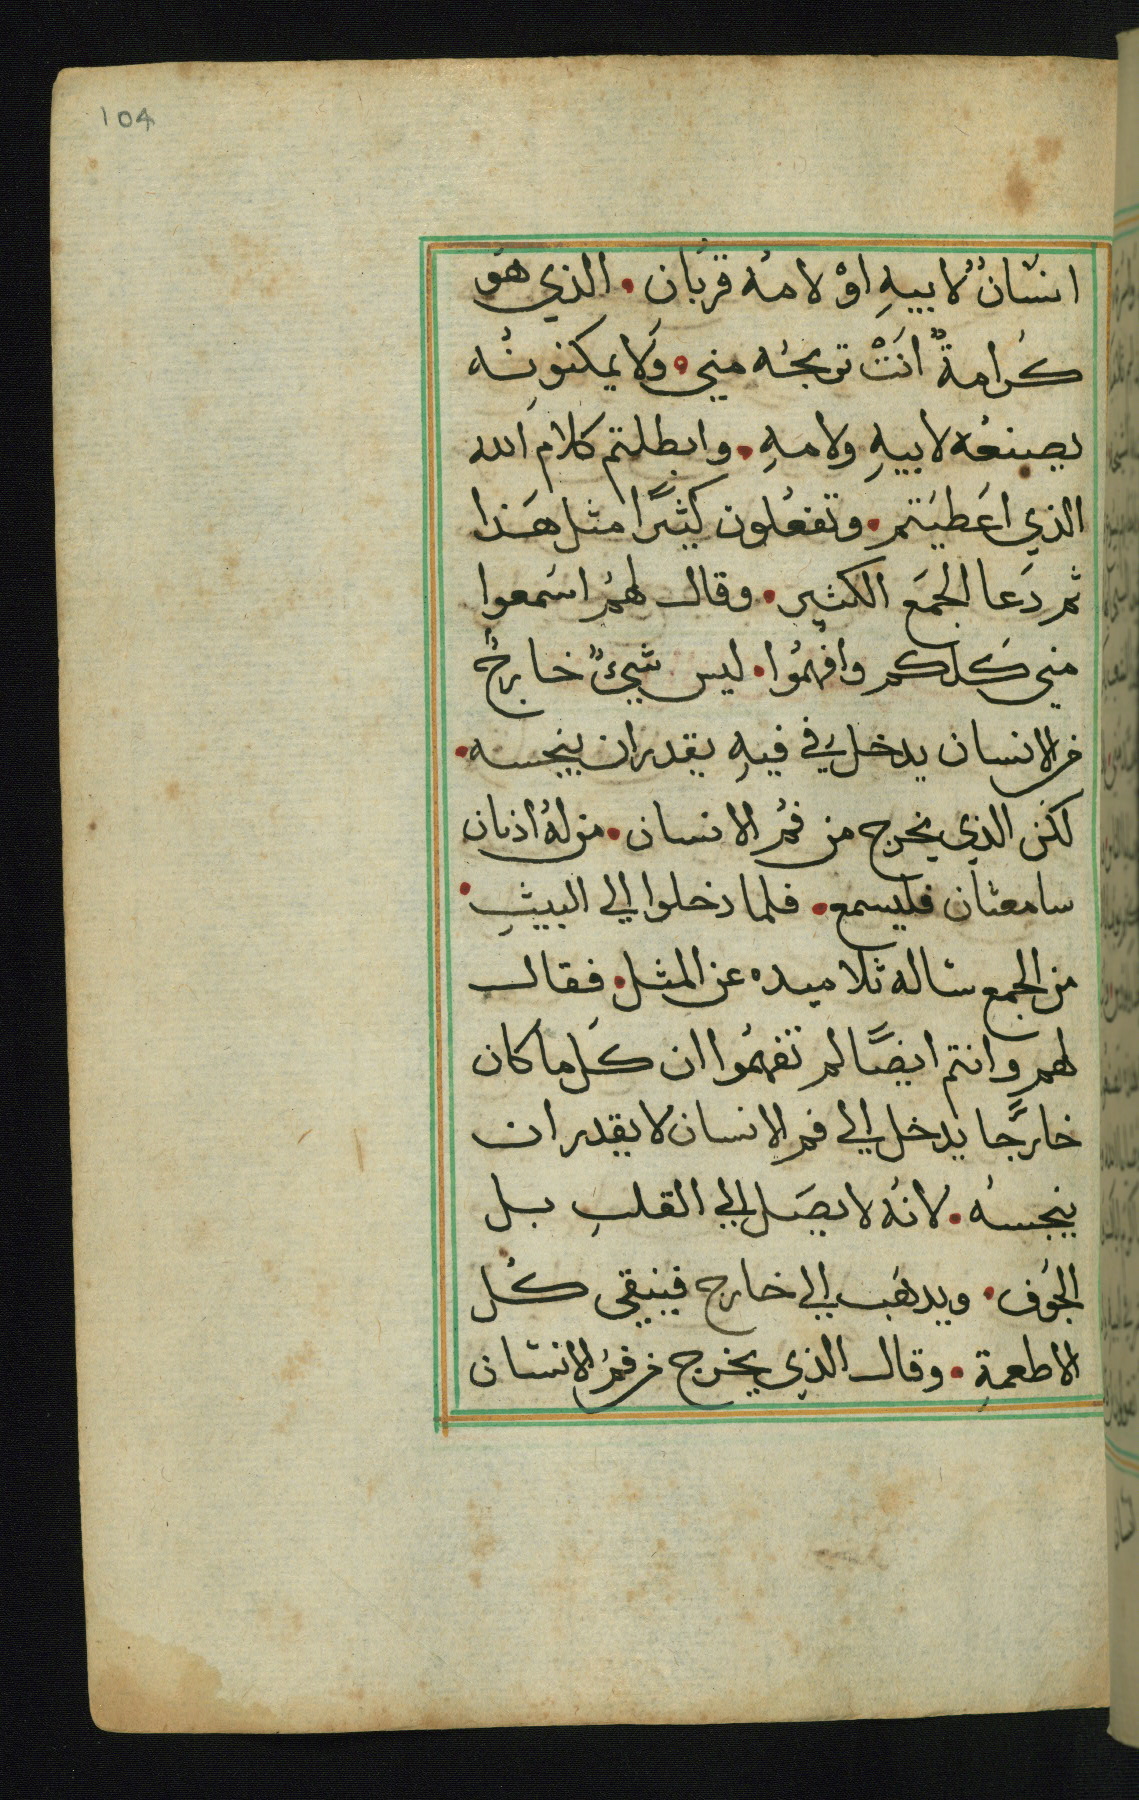 104
انسانٌ لابيهِ اوْ لامهُ قربان • الذي هو
كرامةٌ انَتْ تربحُه مني • ولا يمكنونهُ
يصنعُه لابيهِ ولامهِ • وابطلتم كلام الله
الذي اعَطيَتم • وتفعُلون كثيرًا مثل هذا
ثم دَعا الجمَع الكثير • وقال لهمُ اسمعوا
مني كلكم وافهمُوا • ليس شيءٌ خارجٌ
من الانسان يدخل في فيهِ يقدر ان ينجسه •
لكن الذي يخرج من فمُ الانسان • من لهُ اذنان
سامعتان فليسمع • فلما دخلوا الي البيتِ •
من الجمع ساله تلاميده عن المثل • فقال
لهم وانتم ايضًا لم تفهمُوا ان كل ما كان
خارجًا يدخل الي فم الانسان لا يقدر ان
ينجسهُ • لانهُ لا يصَل الي القلبِ بل
الجوف • ويدهَب الي خارج فينقي كُل
الاطعمةِ • وقال الذي يخرج من فمُ الانسان